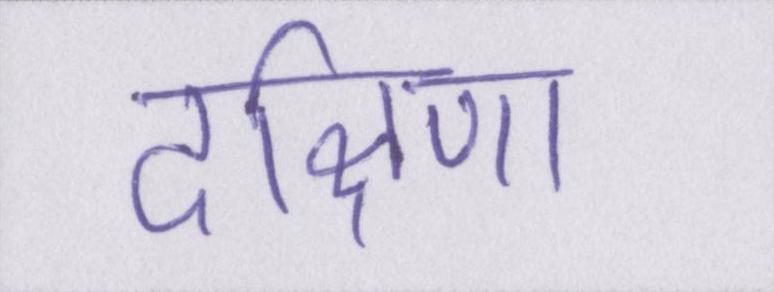 दक्षिणा